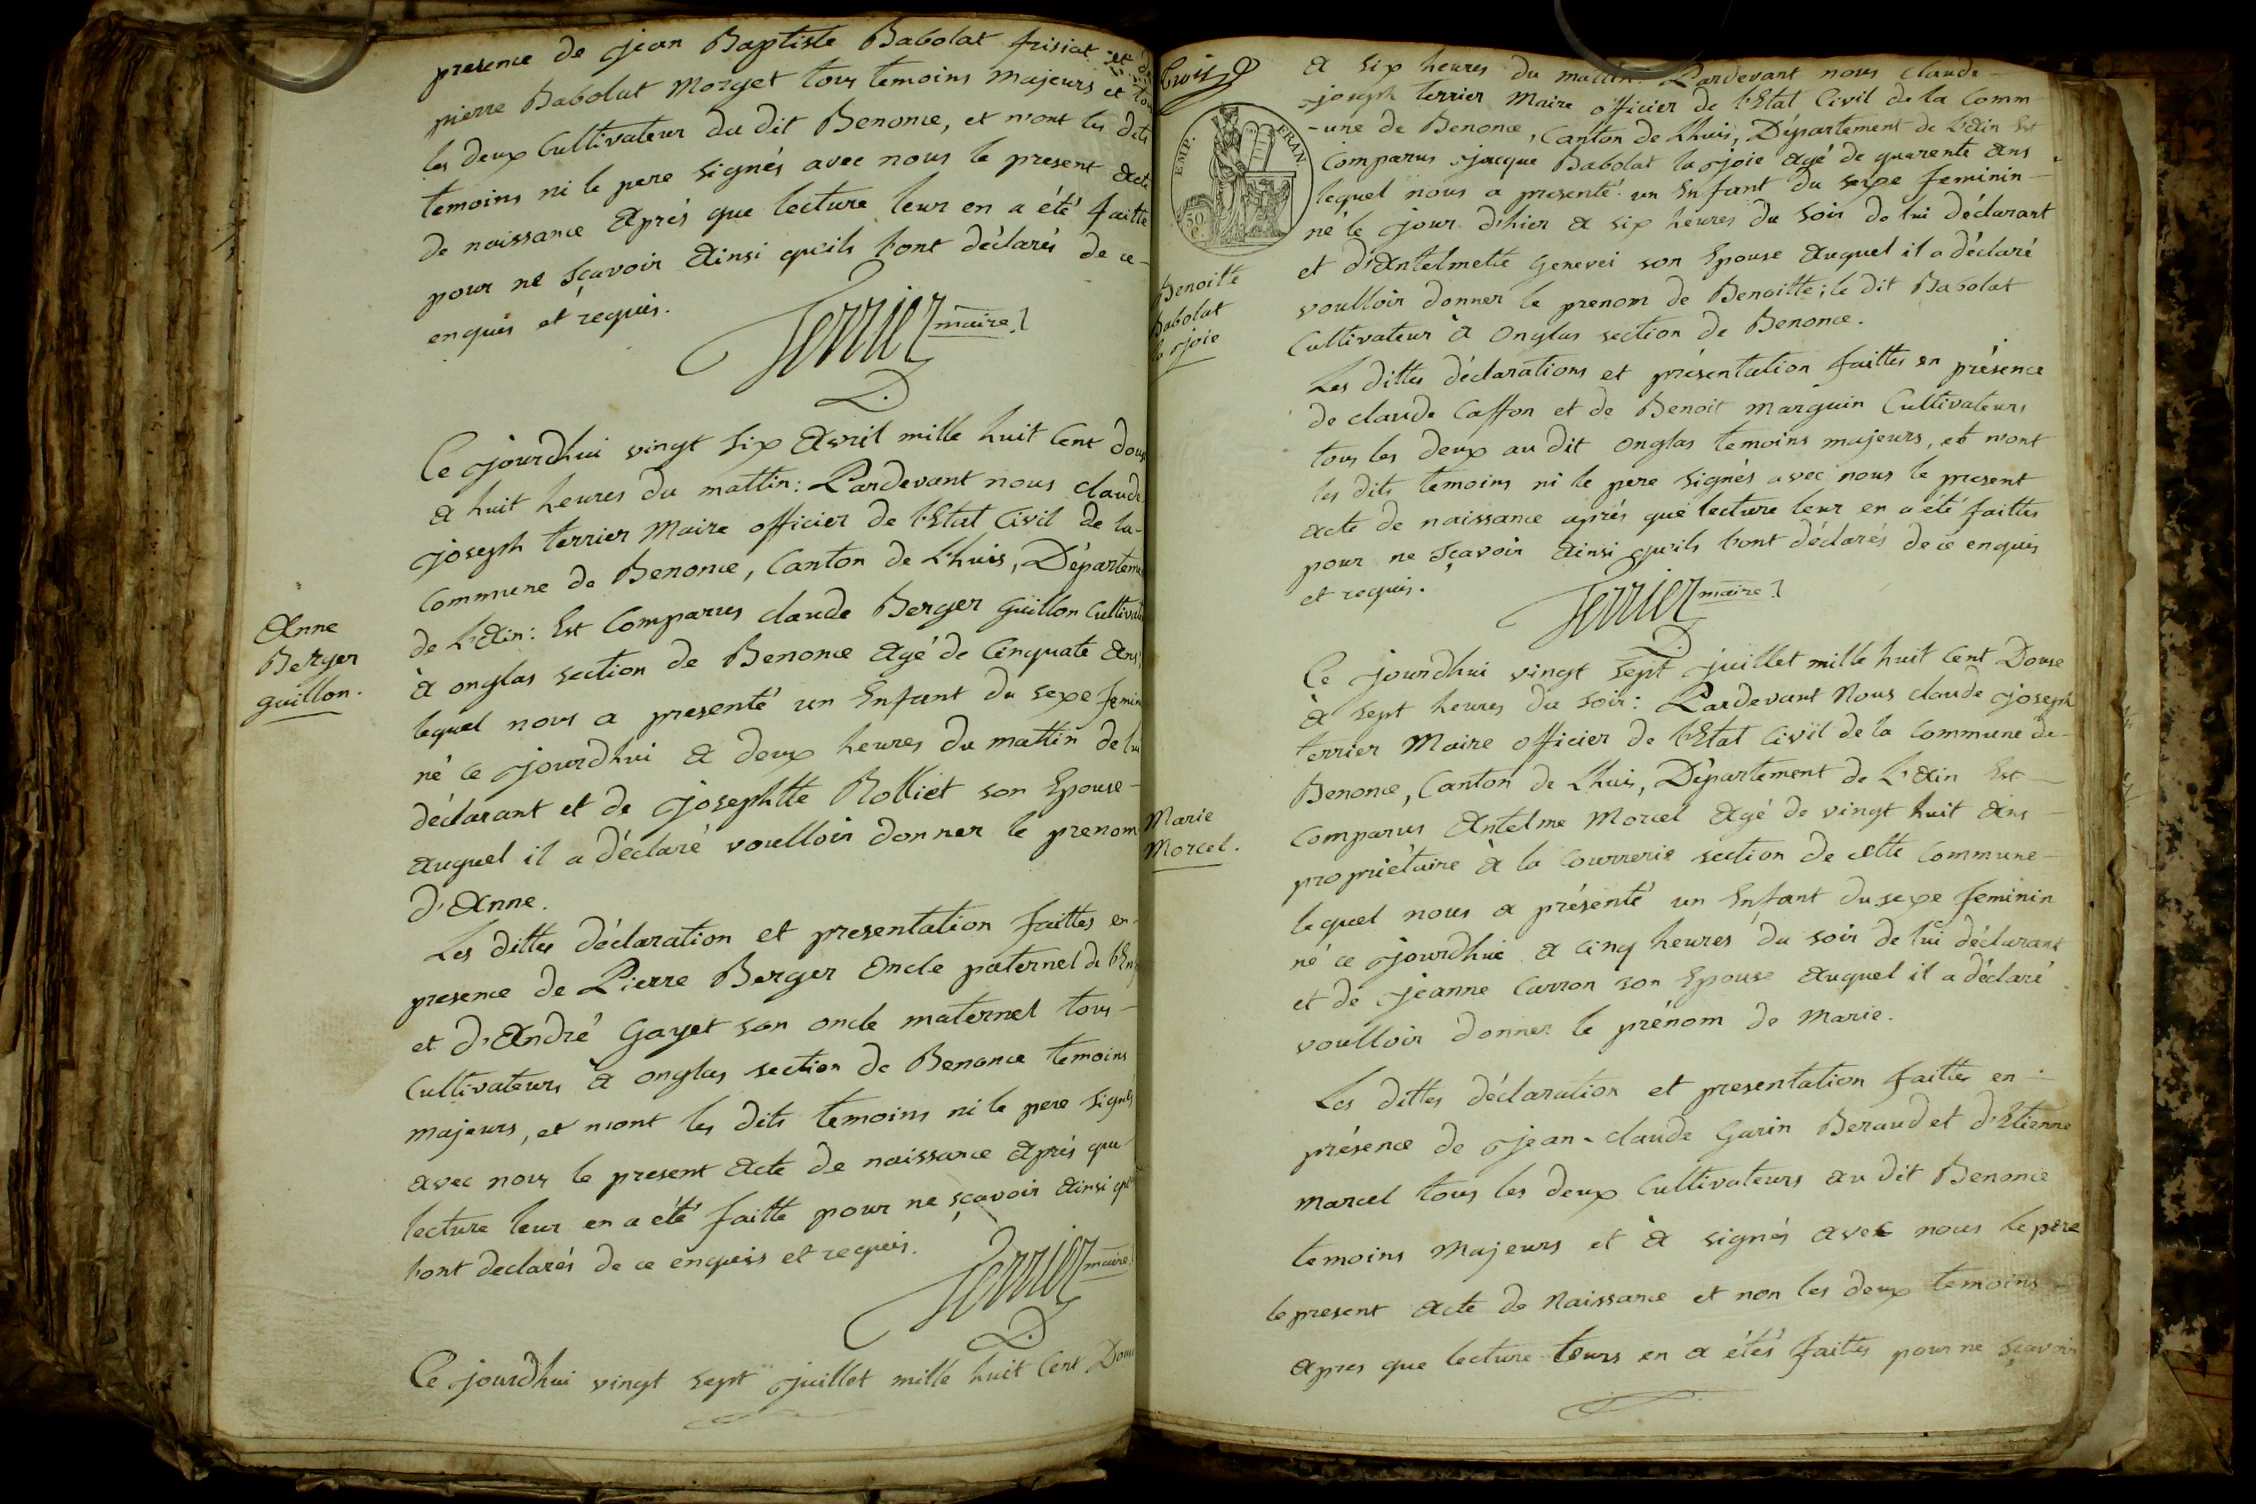 presence de jean Baptiste Babolat frisiat et de
pierre Babolat Morget tous temoins majeurs et tous
les deux Cultivateur du dit Benonce, et n'ont les dits
temoins ni le pere signés avec nous le present acte
de naissance Aprés que lecture leur en a été faitte
pour ne sçavoir Ainsi qu'ils l'ont déclarés de ce
enquis et requis.
Terrier maire
Ce jourdhui vingt six Avril mille huit Cent douse
a huit heures du mattin: Pardevant nous claude
joseph terrier Maire officier de l'Etat Civil de la
commune de Benonce, Canton de Lhuis, Département
Anne
Berger
guillon.
de L'Ain: Est Comparus claude Berger Guillon Cultivateur
à onglas section de Benonce Agé de Cinquate Ans,
lequel nous a presenté un Enfant du sexe feminin
né ce jourdhui a deux heures du mattin de lui
déclarant et de josephtte Rolliet son Epouse
Auquel il a déclaré voulloir donner le prenom
d'Anne.
Les dittes déclaration et presentation faittes en
presence de Pierre Berger Oncle paternel de l'Enf
et d'André Gayet son oncle maternel tous
Cultivateurs à onglas section de Benonce temoins
majeurs, et n'ont les dits temoins ni le pere signés
avec nous le present Acte de naissance Aprés que
lecture leur en a été faitte pour ne sçavoir Ainsi qu'ils
l'ont declarés de ce enquis et requis.
Terrier maire
Ce jourdhui vingt sept juillet mille huit Cent Douse
trois
EMP. FRAN
50 c
a six heures du mattin. Pardevant nous claude
joseph terrier Maire officier de l'Etat Civil de la Comm
-une de Benonce, Canton de Lhuis, Département de L'Ain Est
Comparus jacque Babolat la joie Agé de quarente Ans
lequel nous a presenté un Enfant du sexe feminin
né le jour d'hier a six heures du soir de lui déclarant
Benoitte
Babolat
la joie
et d'Antelmette Genevei son Epouse Auquel il a déclaré
voulloir donner le prenom de Benoitte; le dit Babolat
Cultivateur à Onglas section de Benonce.
Les dittes déclarations et présentation faittes en présence
de claude Caffon et de Benoit Marguin Cultivateurs
tous les deux au dit onglas temoins majeurs, et n'ont
les dits temoins ni le pere signés avec nous le present
acte de naissance aprés que lecture leur en a été faittes
pour ne sçavoir Ainsi qu'ils l'ont déclarés de ce enquis
et requis.
Terrier maire
Ce jourdhui vingt sept juillet mille huit Cent Douse
à sept heures du soir: Pardevant Nous claude joseph
terrier Maire officier de l'Etat Civil de la Commune de
Benonce, Canton de Lhuis, Département de L'Ain Est
Marie
Morcel.
Comparus Antelme Morcel Agé de vingt huit Ans
propriétaire à la Courrerie section de cette Commune
lequel nous a présenté un Enfant du sexe feminin
né ce jourdhui a cinq heures du soir de lui déclarant
et de jeanne Carron son Epouse Auquel il a déclaré
voulloir donner le prénom de Marie.
Les dittes déclaration et presentation faittes en
présence de jean-claude Garin Beraud et d'Etienne
Marcel tous les deux Cultivateurs Au dit Benonce
temoins Majeurs et à signés avec nous le pere
le present Acte de Naissance et non les deux temoins
Apres que lecture leurs en a étés faites pour ne sçavoir